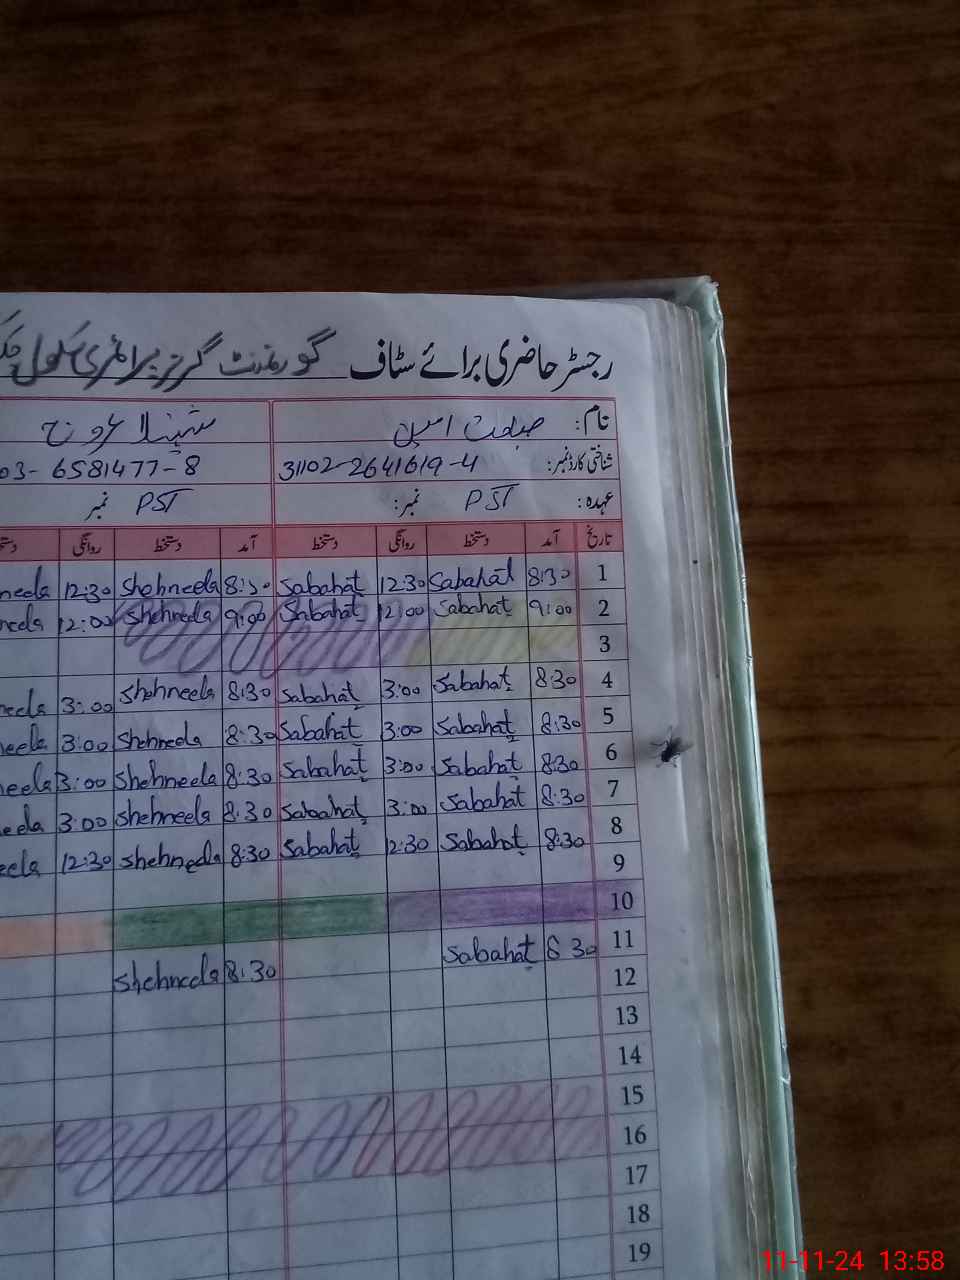 رجسٹر حاضری برائے سٹاف گورنمنٹ گرلز پرائمری سکول
نام: صباحت امین
شناختی کارڈ نمبر: 31102-2641619-4 03-6581477-8
عہدہ: PST نمبر: PST نمبر
تاریخ آمد دستخط روانگی دستخط آمد دستخط روانگی
1 8:30 Sabahat 12:30 Sabahat 8:30 Shehneela 12:30 neela
2 9:00 Sabahat 12:00 Sabahat 9:00 Shehneela 12:00 neela
3
4 8:30 Sabahat 3:00 Sabahat 8:30 Shehneela 3:00 neela
5 8:30 Sabahat 3:00 Sabahat 8:30 Shehneela 3:00 neela
6 8:30 Sabahat 3:00 Sabahat 8:30 Shehneela 3:00 neela
7 8:30 Sabahat 3:00 Sabahat 8:30 shehneela 3:00 eela
8 8:30 Sabahat 12:30 Sabahat 8:30 shehneela 12:30 eela
9
10
11 8 30 Sabahat 8:30 shehneela
12
13
14
15
16
17
18
19
11-11-24 13:58